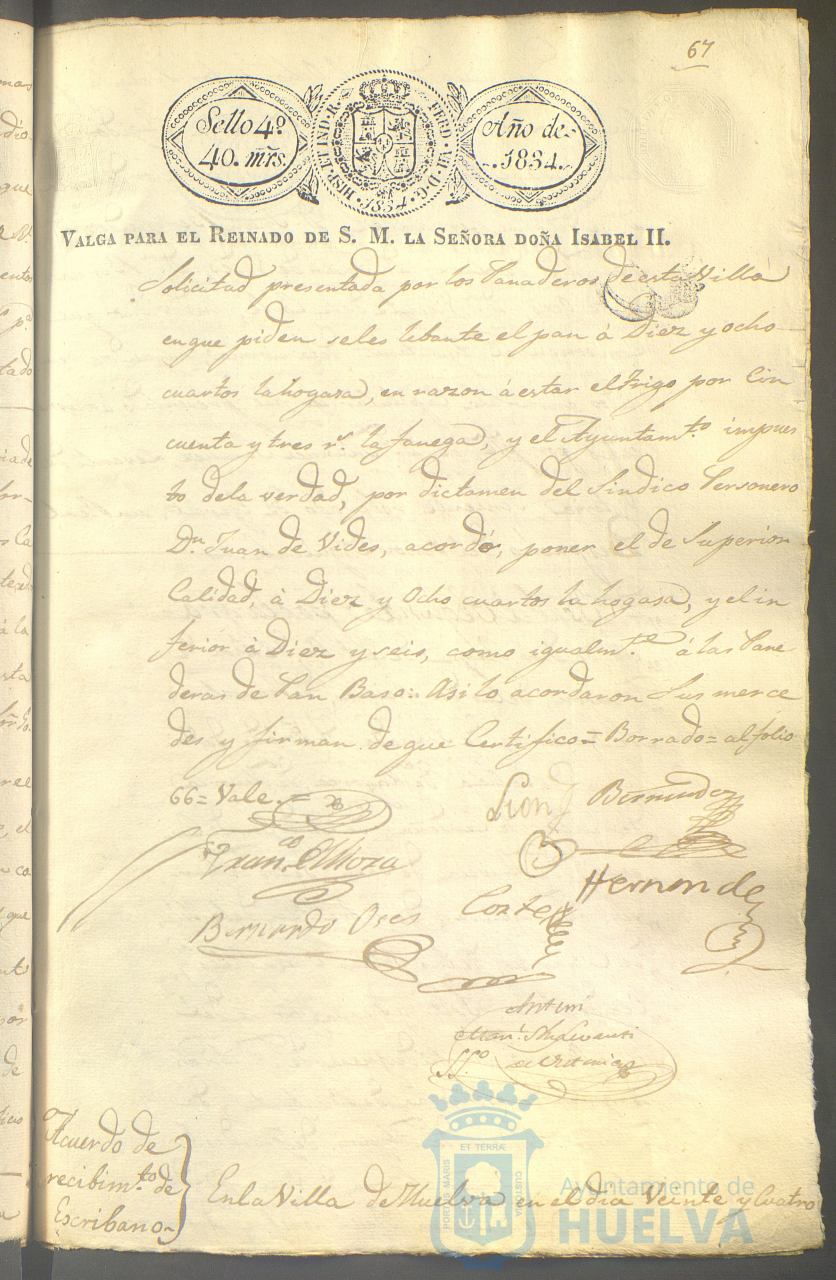 67
Sello 4º
40. mrs.
HISP. ET IND. R. FERD. VII. D. G. 1834.
Año de
1834.
VALGA PARA EL REINADO DE S. M. LA SEÑORA DOÑA ISABEL II.
Solicitud presentada por los Panaderos de esta Villa
en que piden se les lebante el pan á Diez y ocho
cuartos la hogasa, en razon á estar el trigo por Cin
cuenta y tres rs. la fanega, y el Ayuntamto. impues
to dela verdad, por dictamen del Sindico Personero
Dn. Juan de Vides, acordó, poner el de Superior
Calidad, à Diez y Ocho cuartos la hogasa, y el in
ferior à Diez y seis, como igualmte. á las Pane
deras de Pan Baso: Asi lo acordaron Sus merce
des y firman de que Certifico = Borrado = al folio
66 = Vale. =
Leon Bermudez
Franco. Elhoza
Hernande
Bernardo Oses Cortes
Antemi
Manl.
SSo.
Acuerdo de
recibimto. de
Escribano
En la Villa de Huelva en el dia Veinte y Cuatro
PORTUS MARIS ET TERRÆ CUSTODIA
Ayuntamiento de
HUELVA